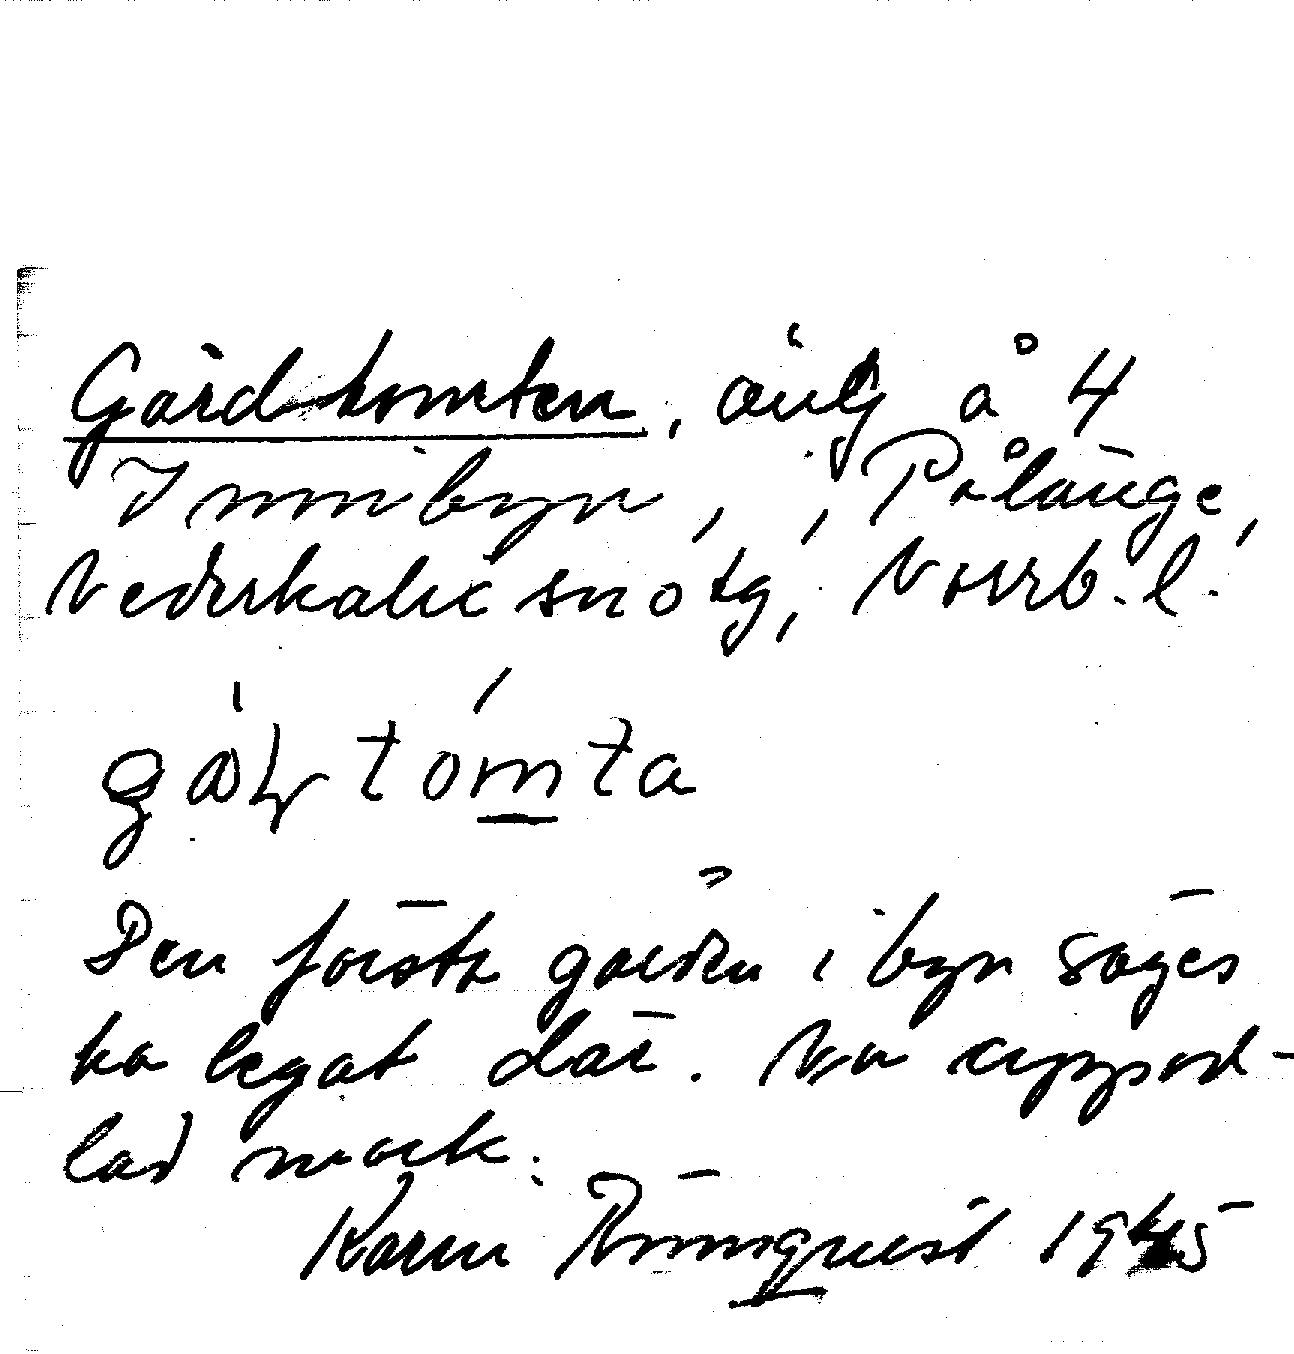 Gårdtomten, äng å 4
Innibyn, i Pålänge,
Nederkalix sn o tg, Norrb. l.
Den första gården i byn säges
ha legat där. Nu uppod-
lad mark.
Karin Rönnquist 1945